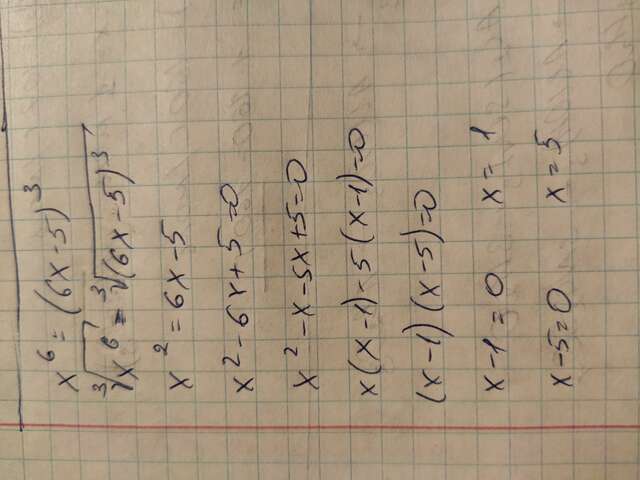 x⁶ = (6x-5)³
∛x⁶ = ∛(6x-5)³
x² = 6x-5
x²-6x+5=0
x²-x-5x+5=0
x(x-1)-5(x-1)=0
(x-1)(x-5)=0
x-1=0 x=1
x-5=0 x=5